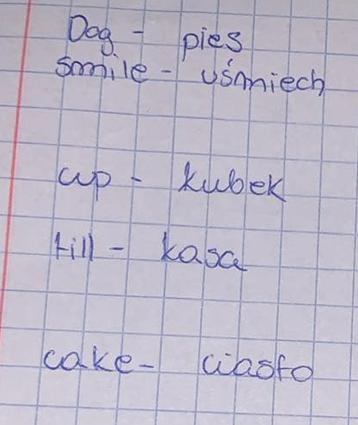 Dog - pies
smile - uśmiech
cup - kubek
till - kasa
cake - ciasto